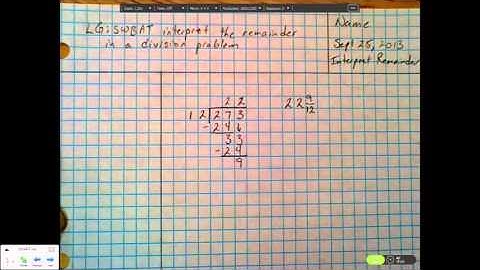 LG: SWBAT interpret the remainder
in a division problem
Name
Sept 25, 2013
Interpret Remainder
22
12 273
-24
33
-24
9
22 9/12